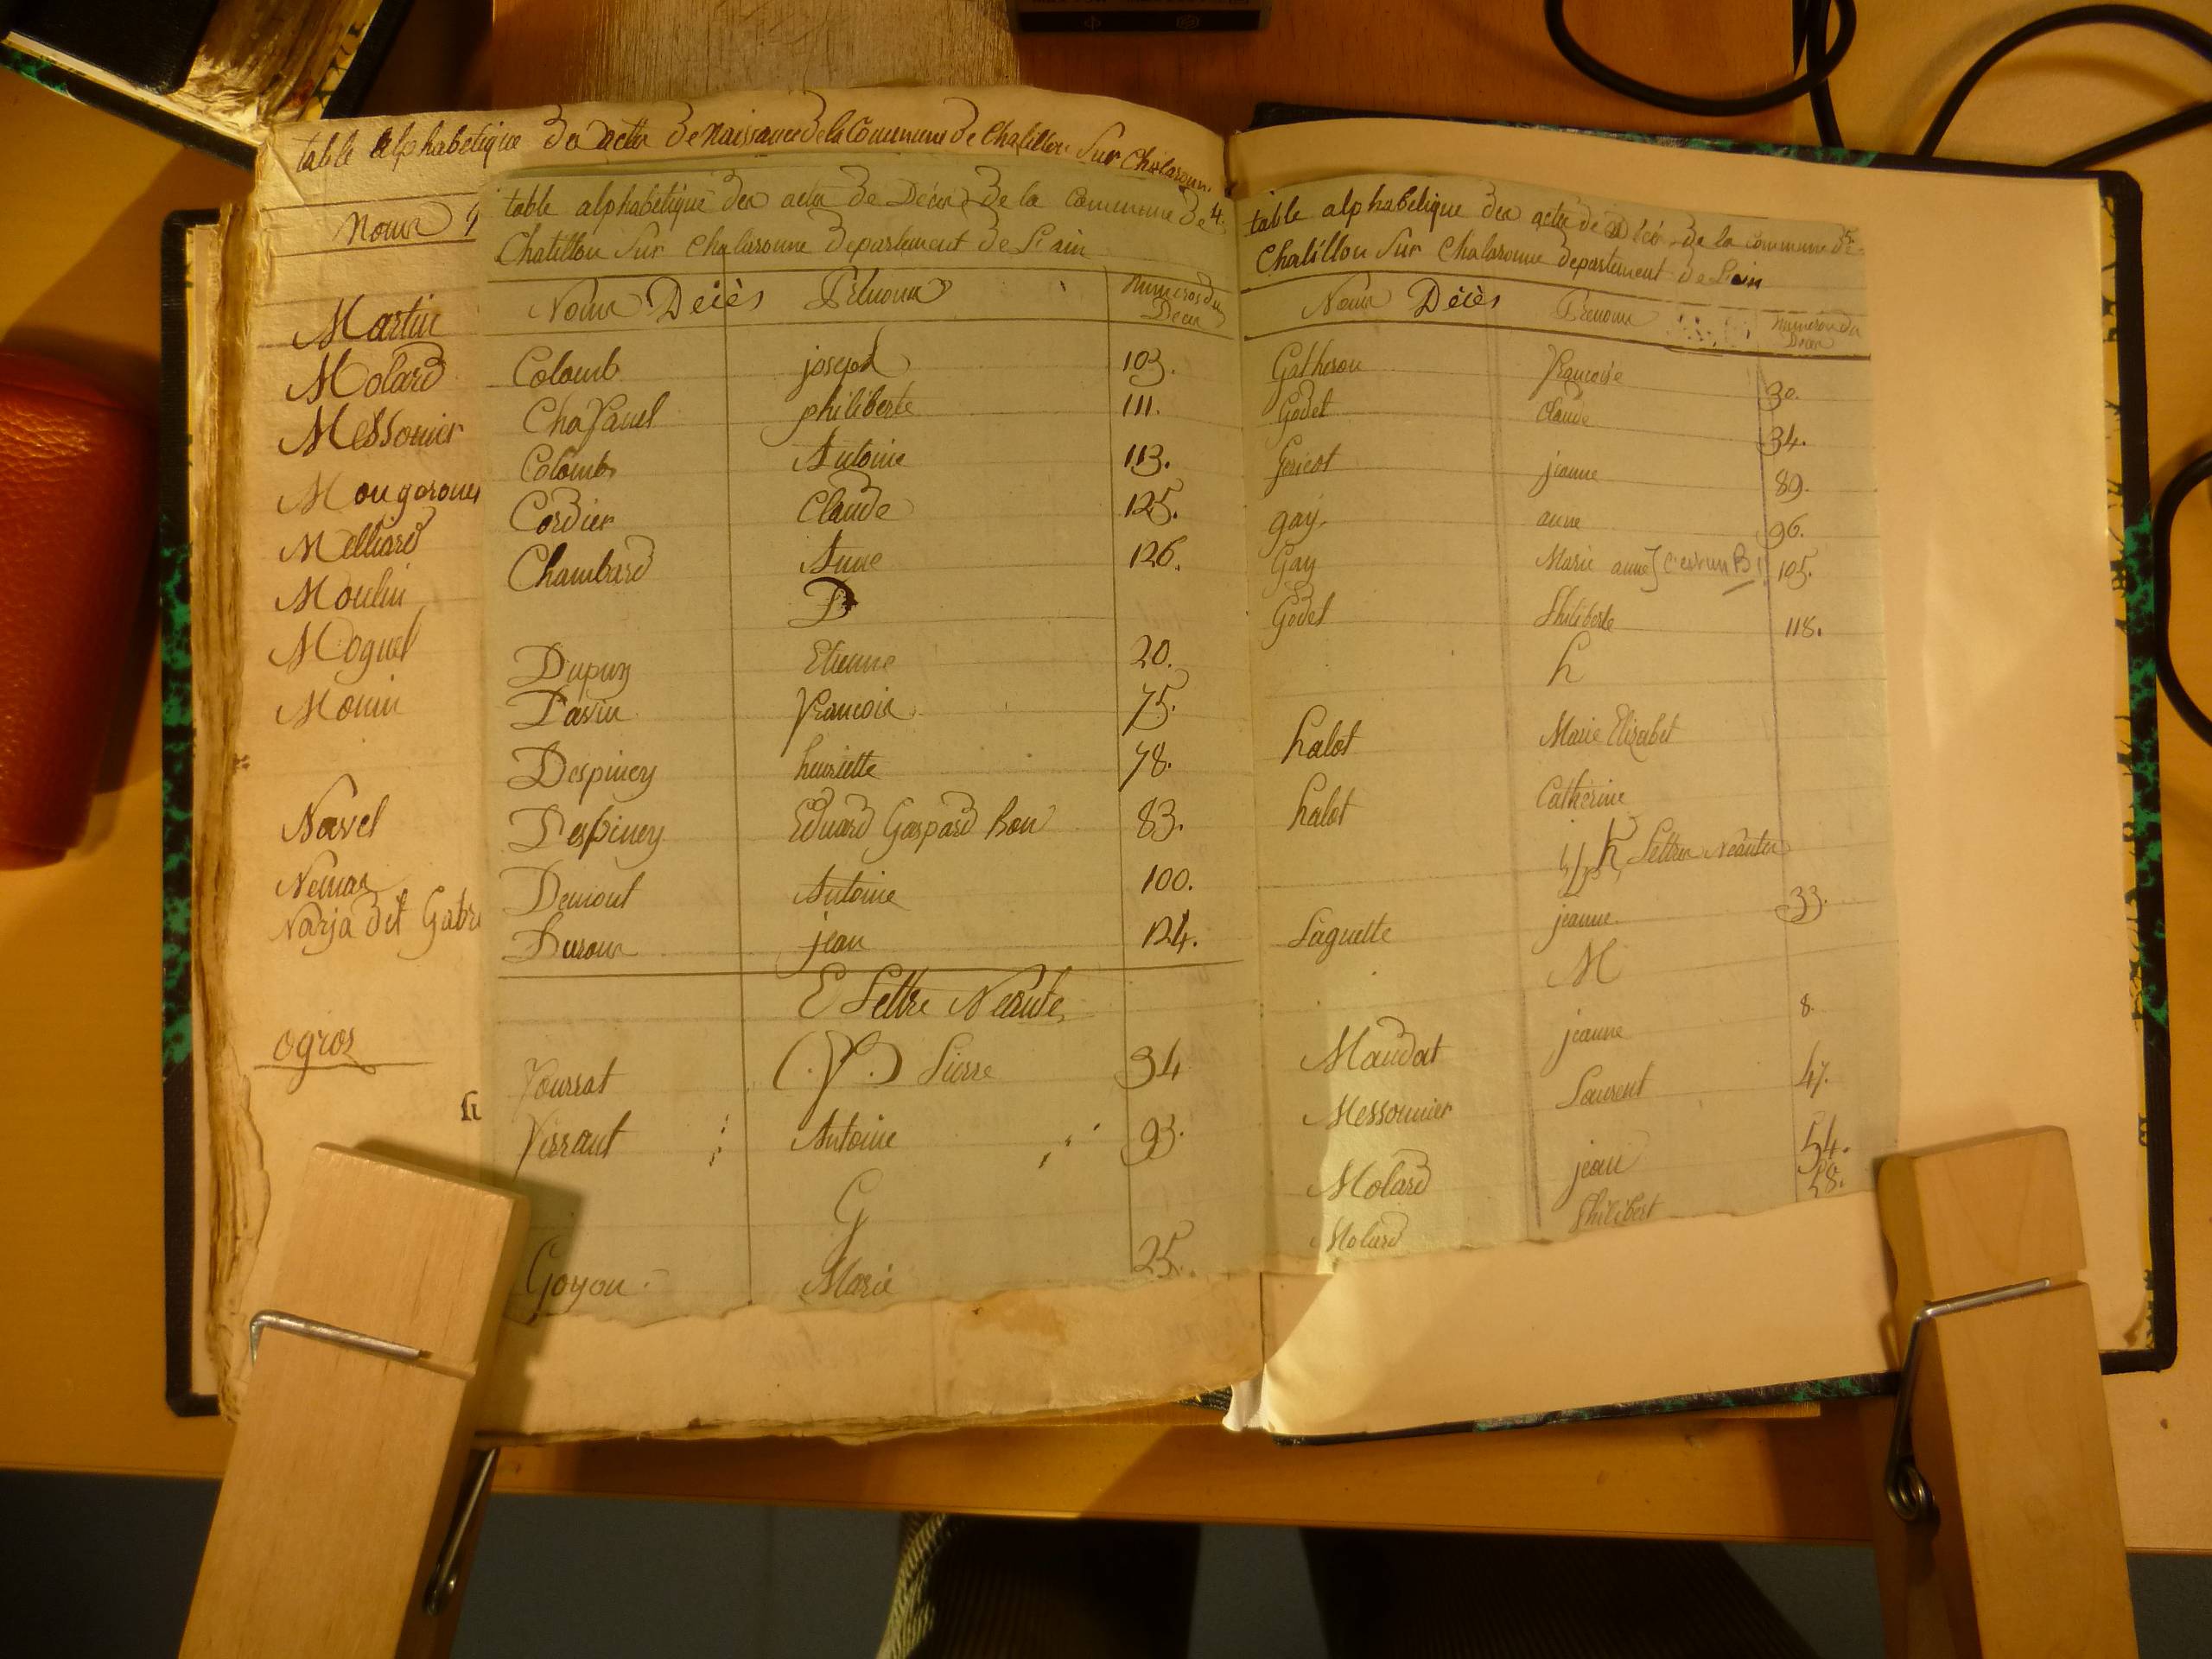 table alphabetique des actes de Naissance de la Commune de Chatillon Sur Chalaronne
Noms
Martin
Molard
Messonier
Mongoroues
Melliard
Moulin
Moguel
Monin
Navel
Narja dit Gabri
ogros
table alphabetique des actes de Décès de la Commune de 4.
Chatillon Sur Chalaronne departement de L'ain
Noms Décès Prénoms Numeros des Décès
Colomb joseph 103.
Chafanel philiberte 111.
Colomb Antoine 113.
Cordier Claude 125.
Chambard Anne 126.
D
Dupuy Etienne 20.
Davin francois 75.
Despiney henriette 78.
Despiney Eduard Gaspard Bon 83.
Demont Antoine 100.
Duroux jean 124.
E Lettre Néante
(.f.)
fourrat Pierre 34
ferrant Antoine 93.
G
Goyon Marie 25.
table alphabetique des actes de Décès de la commune de 5.
Chatillon Sur Chalaronne departement de L'ain
Noms Décès Prenoms Numeros des Décès
Gatheron françoise 30.
Godet Claude 34.
Gericot jeanne 89.
gay anne 96.
Gay Marie anne] c'est un B! 105.
Godet Philiberte 118.
h
halot Marie Elisabet
halot Catherine
i, j, k Lettres Néantes
Laguette jeanne 33.
M
Maudat jeanne 8.
Messonnier Laurent 47.
Molard jean 54.
Molard Philibert 58.